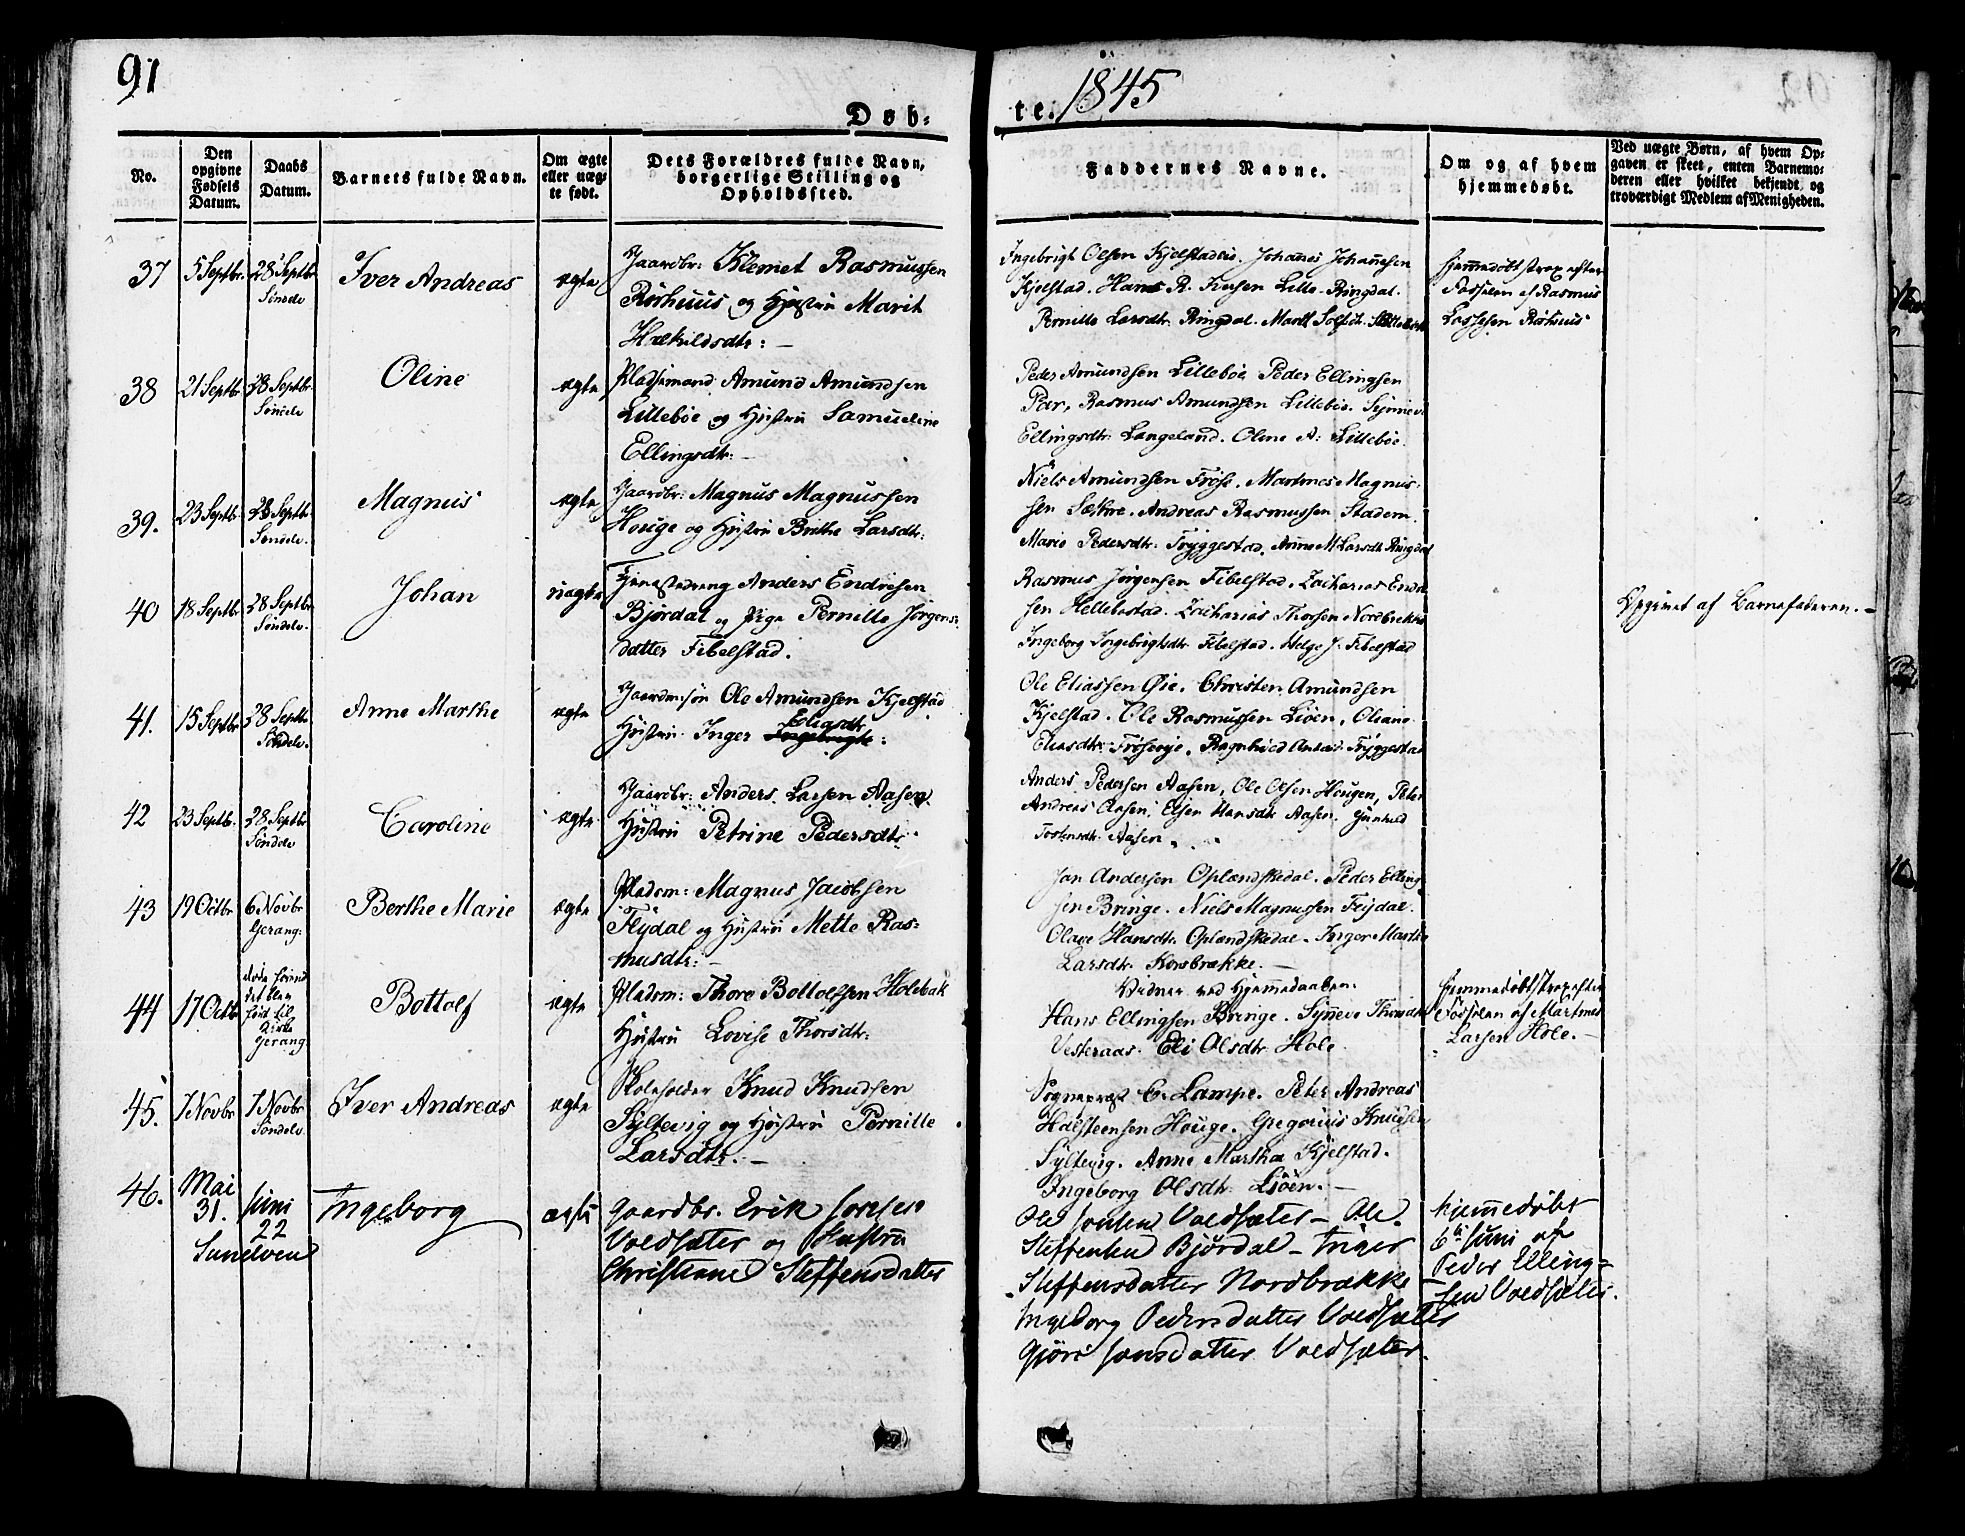 91
1845
Døb=
te.
No.
Den
opgivne
Fødsels
Datum.
Daabs
Datum.
Barnets fulde Navn.
Om ægte
eller uæg=
te født.
Dets Forældres fulde Navn,
borgerlige Stilling og
Opholdssted.
Faddernes Navne.
Om og af hvem
hjemmedøbt.
Ved uægte Børn, af hvem Op=
gaven er skeet, enten Barnemo=
deren eller hvilket bekjendt og
troværdigt Medlem af Menigheden.
37
5 Septbr.
28 Septbr
Søndele
Iver Andreas
ægte
Gaardbr: Klemet Rasmussen
Rørhuus og Hustru Marit
Hækildsdtr: —
Ingebrigt Olsen Kjelstadlie. Johannes Johannesen
Kjelstad. Hans R. Iversen Lille-Ringdal.
Pernille Larsdtr. Ringdal. Marit
hjemmedøbt strax efter
Fødselen af Rasmus
Lassesen Rørhuus
38
21 Septbr.
28 Septbr.
Søndele
Oline
ægte
Pladsemand Amund Amundsen
Lillebøe og Hustru Samueline
Ellingsdtr: —
Peder Amundsen Lillebøe Peder Ellingsen
Rasmus Amundsen Lillebøe. Synneve
Ellingsdtr. Langeland. Oline A: Lillebøe.
39.
23 Septbr
28 Septbr.
Søndele.
Magnus
ægte
Gaardbr: Magnus Magnussen
Houge og Hustru Brithe Larsdtr:
Niels Amundsen Frøse. Martines Magnus=
sen Sætre. Andreas Rasmussen Stadem.
Marie Pedersdtr: Tryggestad. Anne M. Larsdtr. Ringdal
40
18 Septbr
28 Septbr
Søndele.
Johan
uægte
Tjenestedreng Anders Endresen
Bjørdal og Pige Pernille Jørgens=
datter Fibelstad.
Rasmus Jørgensen Fibelstad. Zacharias Endre
sen Hellebostad. Zacharias Thorsen Nordbrække
Ingeborg Ingebrigtsdtr Fibelstad. Helge J: Fibelstad
Opgivet af Barnefaderen. —
41.
15 Septbr
28 Septbr
Søndele.
Anne Marthe
ægte
Gaardm:søn Ole Amundsen Kjelstad
Hustru Inger Eliasdtr Ingebrigts:
Ole Eliassen Øie. Christen Amundsen
Kjelstad. Ole Rasmussen Liøen. Oliane
Eliasdtr: Frøsevje. Ragnhild Tryggestad
42
23 Septb.
28 Septbr
Søndele
Caroline
ægte
Gaardbr: Anders Larsen Aasen.
Hustru Petrine Pedersdtr:
Anders Pedersen Aasen, Ole Olsen Hougen, Peter
Andreas Aasen, Elsen Hansdtr Aasen. Gunhild
Tostensdtr. Aasen.
43
19 Octbr
6 Novbr
Gerang:
Berthe Marie
ægte
Pladsm: Magnus Jacobsen
Flydal og Hustru Mette Ras=
musdtr: —
Jon Andersen Oplændskedal. Peder Elling=
sen Bringe. Niels Magnussen Flydal.
Olave Hansdtr. Oplændskedal. Inger Marthe
Larsdtr. Korsbrække. —
44
17 Octbr
døde forend
det blev
ført til
Kirke
Gerang
Bottolf
ægte
Pladsm: Thore Bottolfsen Holebak
Hustru Lovise Thorsdtr:
Vidner ved Hjemmedaaben:
Hans Ellingsen Bringe. Synneve Thorsdtr
Vesteraas. Eli Olsdtr. Hole.
hjemmedøbt strax efter
Fødselen af Martines
Larsen Hole. —
45.
1 Novbr
7 Novbr
Søndele
Iver Andreas
ægte
Skoleholder Knud Knudsen
Syltevig og Hustru Pernille
Larsdtr. —
Sognepræst C. Lampe. Peter Andreas
Holsteensen Houge. Gregorius Knudsen
Syltevig. Anne Marthe Kjelstad.
Ingeborg Olsdtr. Liøen. —
46.
Mai
31.
Sunelven
Juni
22
Ingeborg
ægte
Gaardbr. Erik Jonsen
Voldsæter og Hustru
Christiane Steffensdatter
Ole Jonsen Voldsæter — Ole
Steffensen Bjørdal — Inger
Steffensdatter Nordbrække —
Ingeborg Pedersdatter Voldsæter
Gjøri Jonsdatter Voldsæter.
hjemmedøbt
6te Juni af
Peder Elling=
sen Voldsæter.